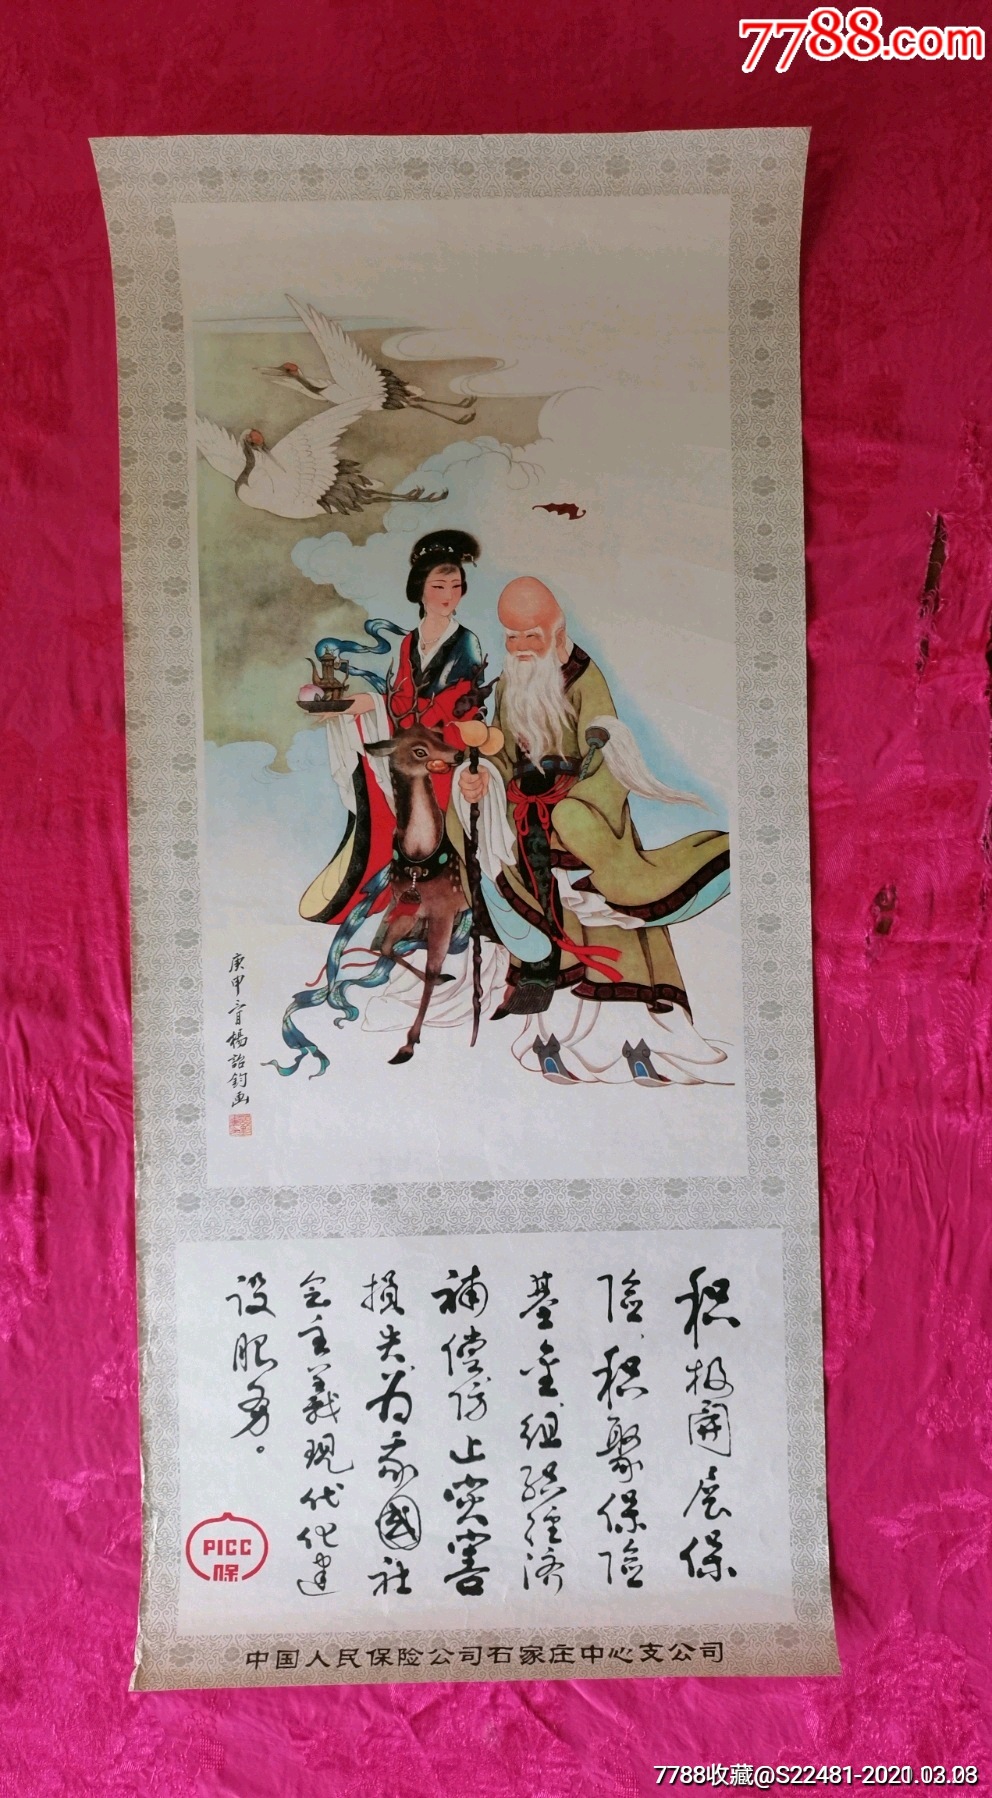 7788.com
庚申三月楊詒鈞画
积极開展保
险，积聚保险
基金，组织经济
補偿防止災害
損失为我國社
会主義現代化建
设服务。
PICC
保
中国人民保险公司石家庄中心支公司
7788收藏@S22481-2020.03.03